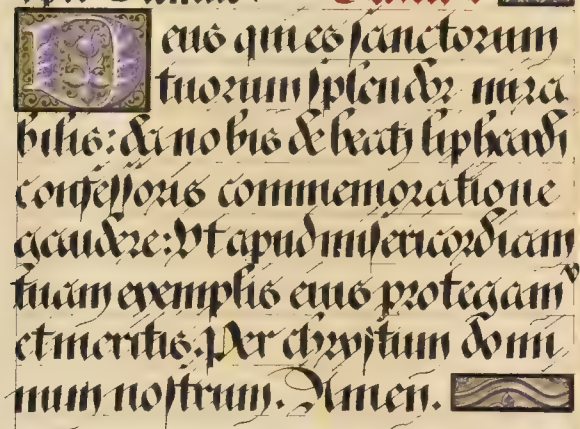 Deus qui es sanctorum
tuorum splendor mira
bilis: da nobis de beati liphardi
confessoris commemoratione
gaudere: Vt apud misericordiam
tuam exemplis eius protegam᷒
et meritis. Per christum domi
num nostrum. Amen.